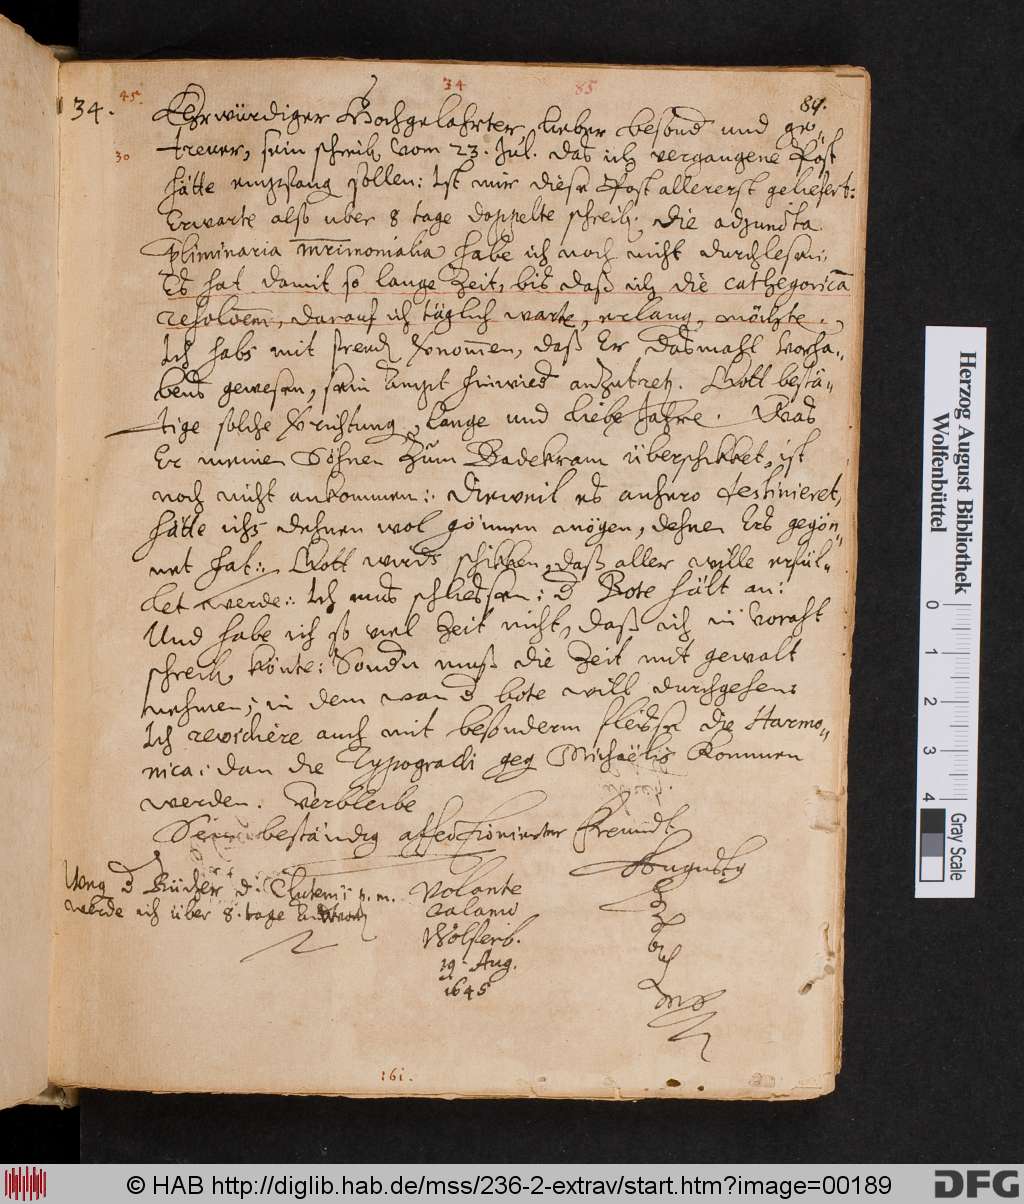 34. 45. 34 85 84.
Ehrwürdiger Hochgelahrter, lieber besond und ge„
30 treuer, sein schreib vom 23. Jul. das ich vergangene Post
hätte empfang sollen: Ist mir diese Post allererst geliefert:
Erwarte also uber 8 tage doppelte schreib. die adjuncta
habe ich noch nicht durchlesen:
Es hat damit so lange Zeit, bis daß ich die cathegoricā
resolution, darauf ich täglich warte, erlang, möchte.
Ich habs mit freud vernom̄en, daß Er dasmahl vorha„
bens gewesen, sein Ampt hinwied anzutret. Gott bestä„
tige solche Verrichtung, lange und liebe Jahre. Was
Er meinen Söhnen zum Badekram überschikket, ist
noch nicht ankommen: dieweil es anhero destinieret,
hätte ichs dehnen wol gönnen mögen, dehnen Ers gegön„
net hat: Gott wirds schikken, daß aller wille erfül„
let werde: Ich mus schliessen: d Bote hält an:
Und habe ich so viel Zeit nicht, daß ich in Voraht
schreib könte: Sond'n muß die Zeit mit gewalt
nehmen; in dem wan d bote will durchgehen:
Ich revidiere auch mit besonderm fleisse die Harmo„
nica: dan die Typogradi geg Michaëlis kommen
werden. Verbleibe
Sein beständig affectionierter Freundt
Augustus
Weg d Bücher d. Cluteni p. m.
werde ich über 8. tage Antwort
Volante
Calamo
Wolferb.
19. Aug.
1645
161.
Herzog August Bibliothek
Wolfenbüttel
0 1 2 3 4
Gray Scale
© HAB http://diglib.hab.de/mss/236-2-extrav/start.htm?image=00189
DFG